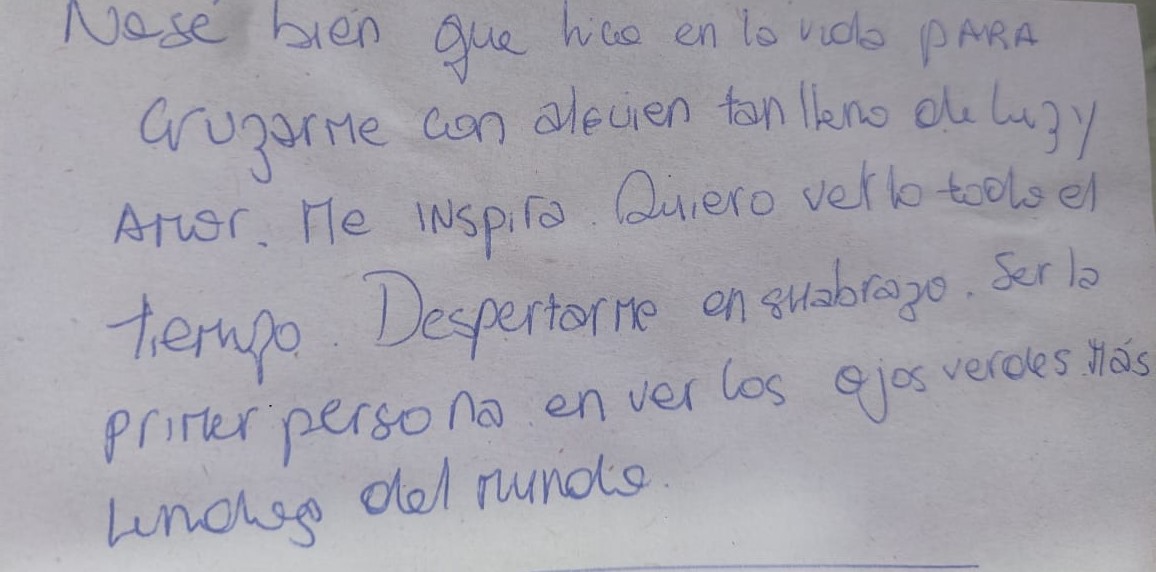 Nosé bien que hice en la vida PARA
cruzarme con alguien tan lleno de luz y
Amor. Me INSpira. Quiero verlo todo el
tiempo. Despertarme en su abrazo. Ser la
primer persona en ver los ojos verdes Más
lindos del mundo.